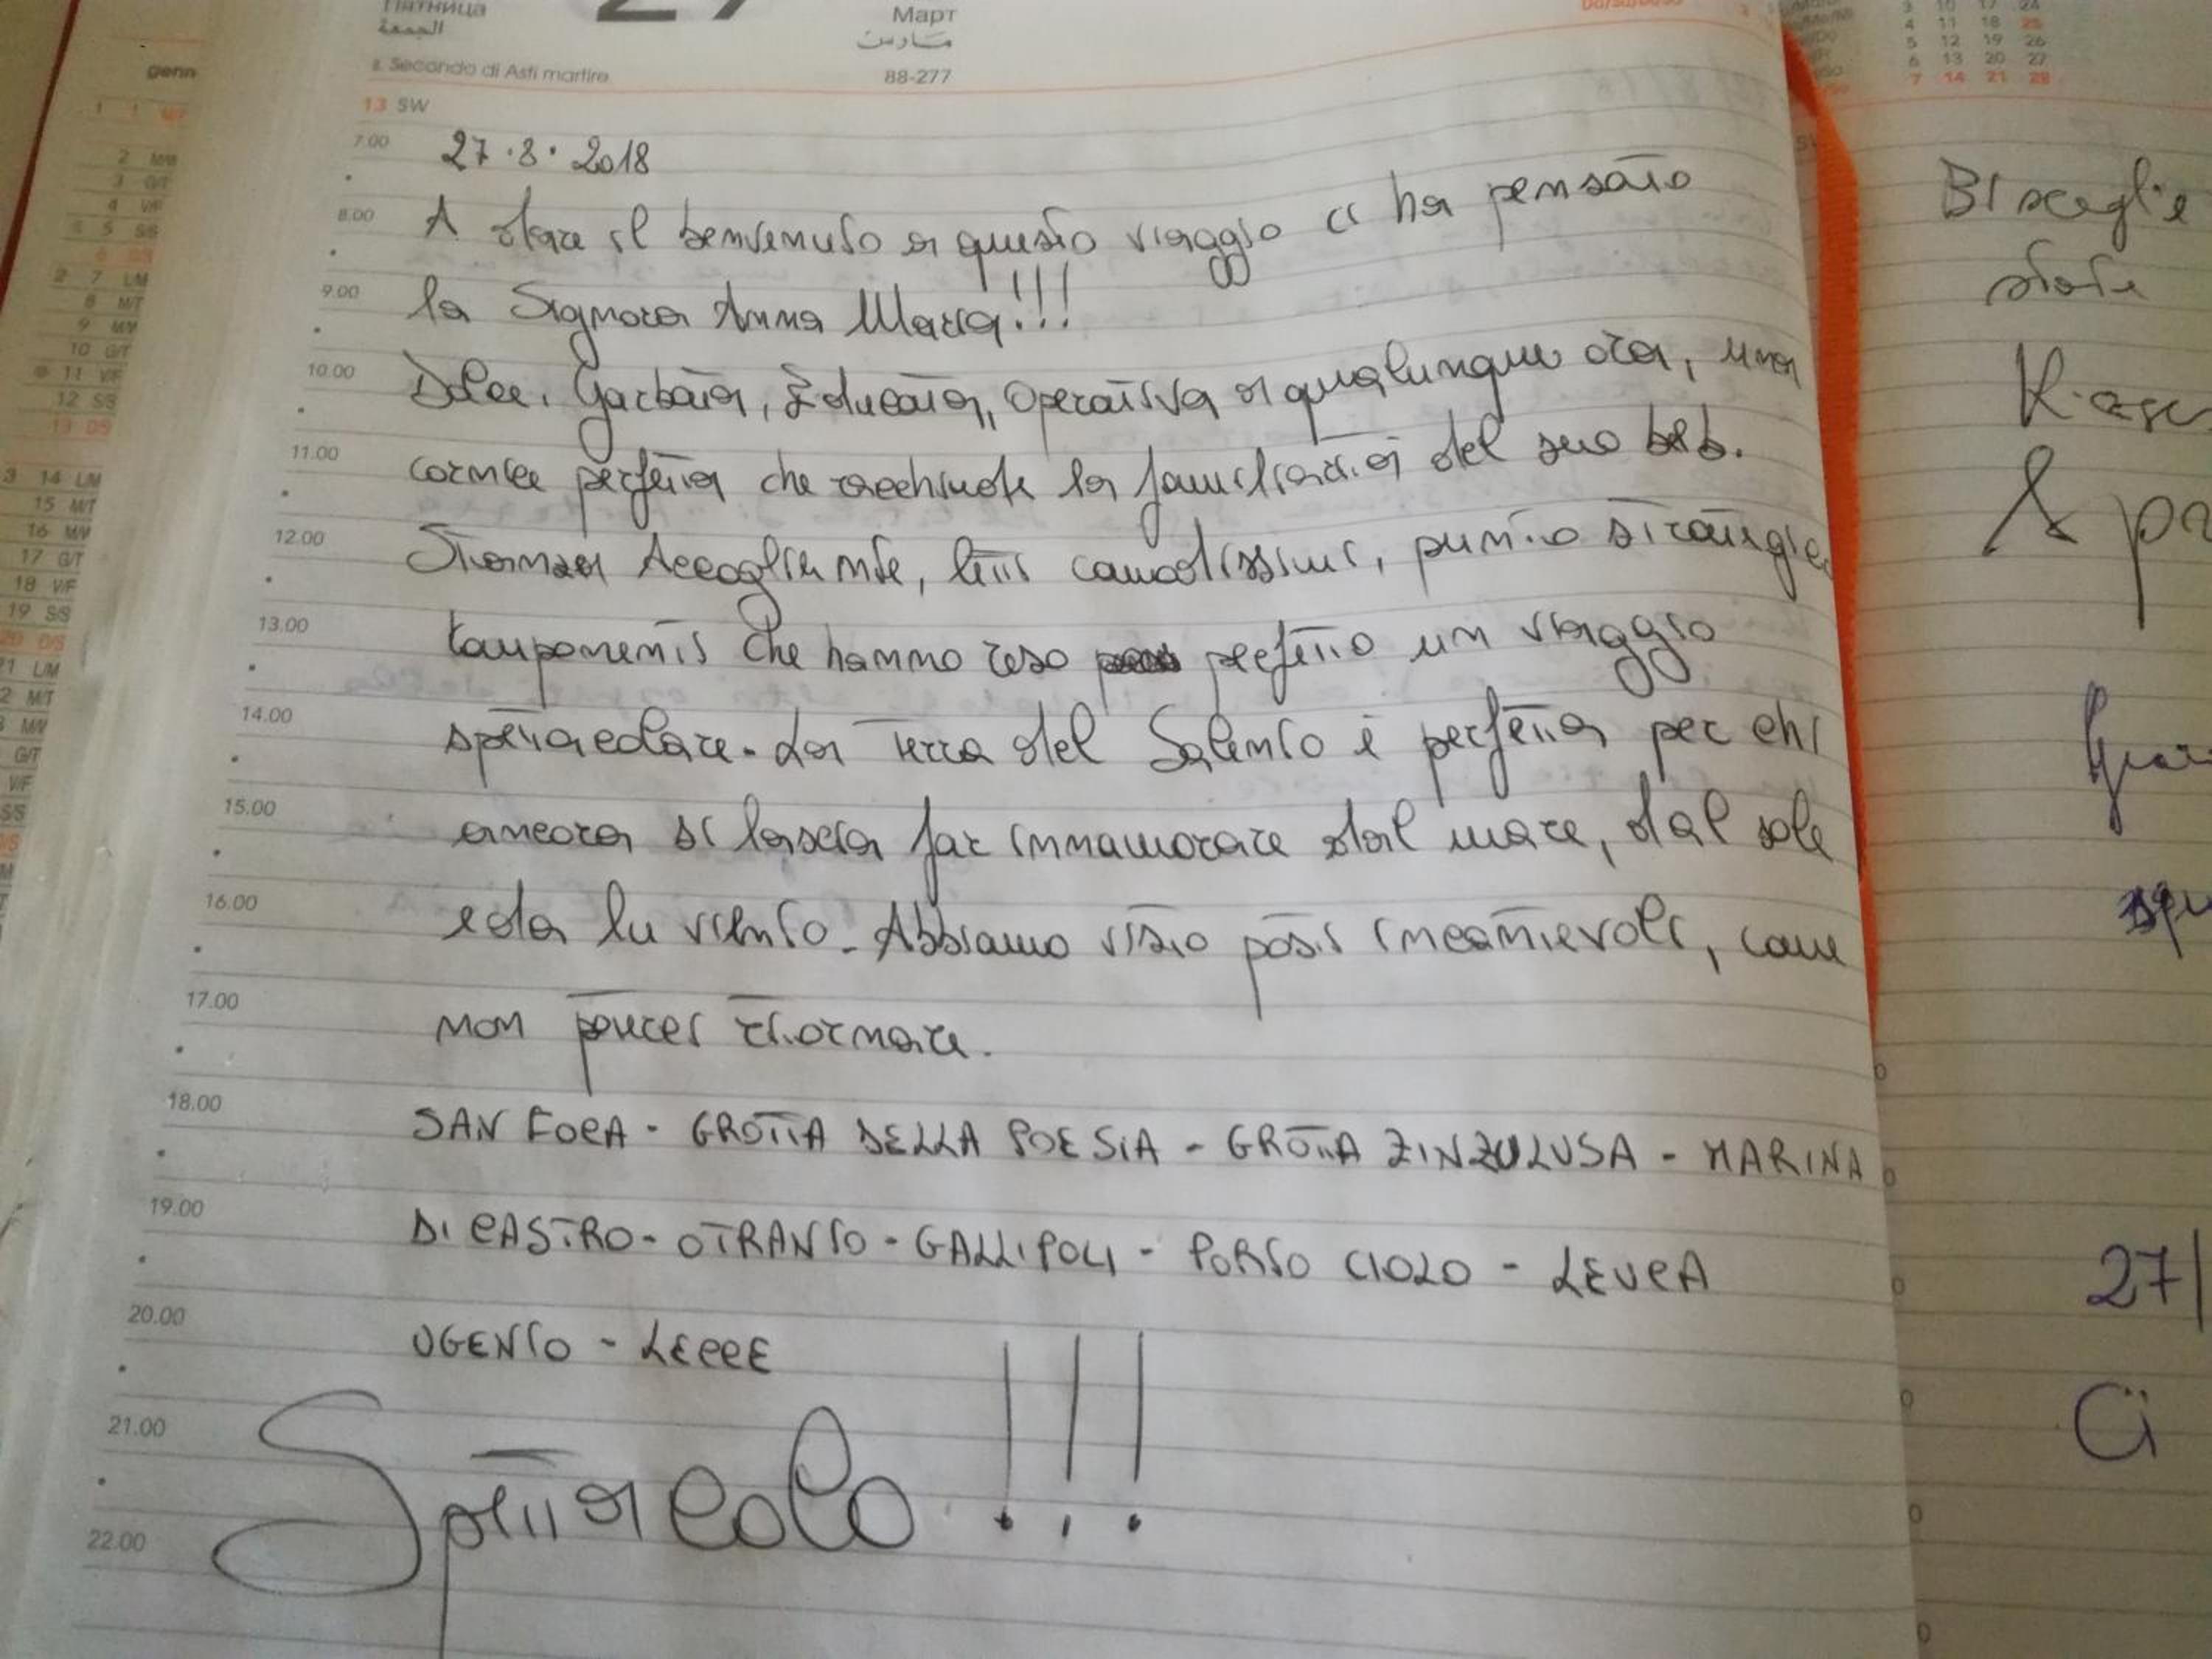 Пятница
27
Март
الجمعة
مارس
s. Secondo di Asti martire
88-277
genn
13 SW
7.00 27.8.2018
8.00 A dare il benvenuto a questo viaggio ci ha pensato
9.00 la Signora Anna Maria!!!
10.00 Dolce, Garbata, Educata, Operativa a qualunque ora, una
11.00 cornice perfetta che racchiude la familiarità del suo b&b.
12.00 Stanza Accogliente, letti comodissimi, punto strategico
13.00 componenti che hanno reso perfetto un viaggio
14.00 spettacolare. La Terra del Salento è perfetta per chi
15.00 ancora si lascia far innamorare dal mare, dal sole
16.00 e da lu viento. Abbiamo visto posti incantevoli, come
17.00 non poterci ritornare.
18.00 SAN FOCA - GROTTA DELLA POESIA - GROTTA ZINZULUSA - MARINA
19.00 DI CASTRO - OTRANTO - GALLIPOLI - PORTO CIOLO - LEUCA
20.00 UGENTO - LECCE
21.00 Spettacolo!!!
22.00
Bisceglie
&
27/
Ci